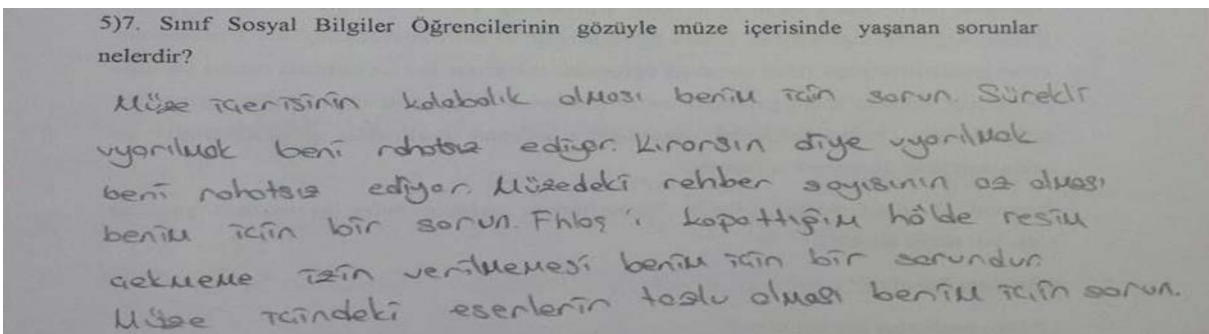 5)7. Sınıf Sosyal Bilgiler Öğrencilerinin gözüyle müze içerisinde yaşanan sorunlar
nelerdir?
Müze içerisinin kalabalık olması benim için sorun. Sürekli
uyarılmak beni rahatsız ediyor. Kırarsın diye uyarılmak
beni rahatsız ediyor. Müzedeki rehber sayısının az olması
benim için bir sorun. Fhlaş'ı kapattığım hâlde resim
çekmeme izin verilmemesi benim için bir sorundur.
Müze içindeki eserlerin tozlu olması benim için sorun.